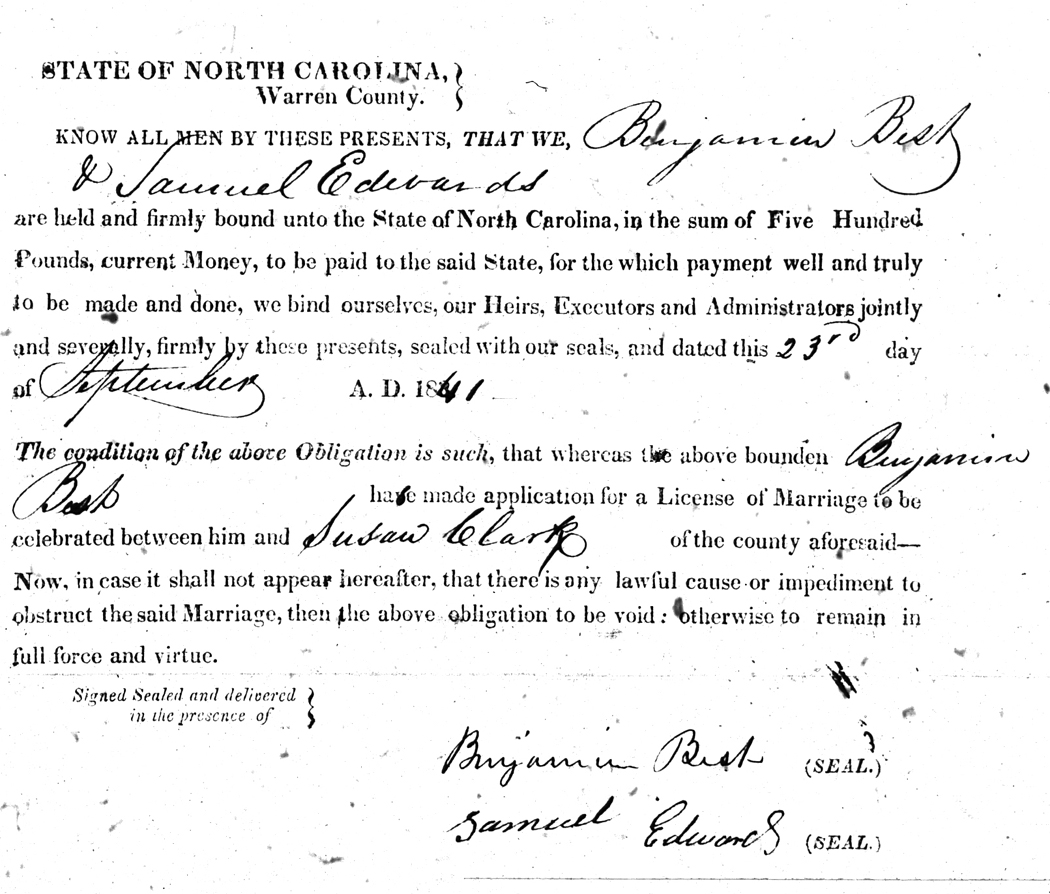 STATE OF NORTH CAROLINA,
Warren County.
KNOW ALL MEN BY THESE PRESENTS, THAT WE, Benjamin Best
& Samuel Edwards
are held and firmly bound unto the State of North Carolina, in the sum of Five Hundred
Pounds, current Money, to be paid to the said State, for the which payment well and truly
to be made and done, we bind ourselves, our Heirs, Executors and Administrators jointly
and severally, firmly by these presents, sealed with our seals, and dated this 23rd day
of September A. D. 1841
The condition of the above Obligation is such, that whereas the above bounden Benjamin
Best have made application for a License of Marriage to be
celebrated between him and Susan Clark of the county aforesaid—
Now, in case it shall not appear hereafter, that there is any lawful cause or impediment to
obstruct the said Marriage, then the above obligation to be void: otherwise to remain in
full force and virtue.
Signed Sealed and delivered
in the presence of
Benjamin Best (SEAL.)
Samuel Edwards (SEAL.)